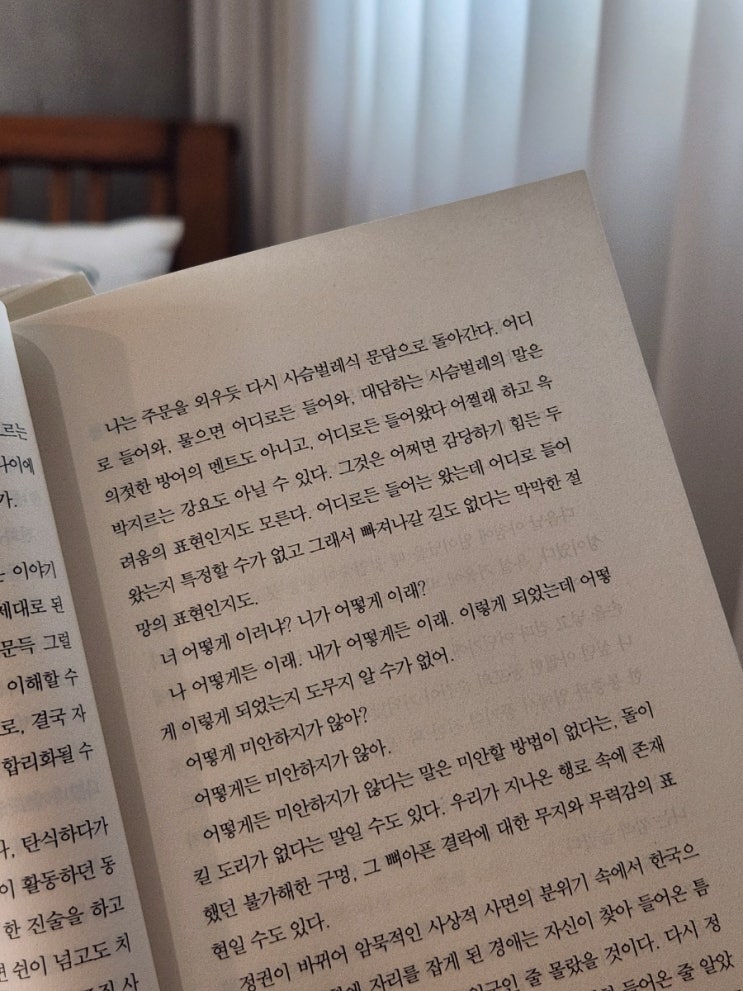 르는
나이에
가.
이야기
제대로 된
문득 그럴
이해할 수
로, 결국 자
합리화될 수
탄식하다가
이 활동하던 동
한 진술을 하고
쉰이 넘고도 치
나는 주문을 외우듯 다시 사슴벌레식 문답으로 돌아간다. 어디
로 들어와, 물으면 어디로든 들어와, 대답하는 사슴벌레의 말은
의젓한 방어의 멘트도 아니고, 어디로든 들어왔다 어쩔래 하고 윽
박지르는 강요도 아닐 수 있다. 그것은 어쩌면 감당하기 힘든 두
려움의 표현인지도 모른다. 어디로든 들어는 왔는데 어디로 들어
왔는지 특정할 수가 없고 그래서 빠져나갈 길도 없다는 막막한 절
망의 표현인지도.
너 어떻게 이러냐? 니가 어떻게 이래?
나 어떻게든 이래. 내가 어떻게든 이래. 이렇게 되었는데 어떻
게 이렇게 되었는지 도무지 알 수가 없어.
어떻게 미안하지가 않아?
어떻게든 미안하지가 않아.
어떻게든 미안하지가 않다는 말은 미안할 방법이 없다는, 돌이
킬 도리가 없다는 말일 수도 있다. 우리가 지나온 행로 속에 존재
했던 불가해한 구멍, 그 뼈아픈 결락에 대한 무지와 무력감의 표
현일 수도 있다.
정권이 바뀌어 암묵적인 사상적 사면의 분위기 속에서 한국으
자리를 잡게 된 경애는 자신이 찾아 들어온 틈
줄 몰랐을 것이다. 다시 정
들어온 줄 알았